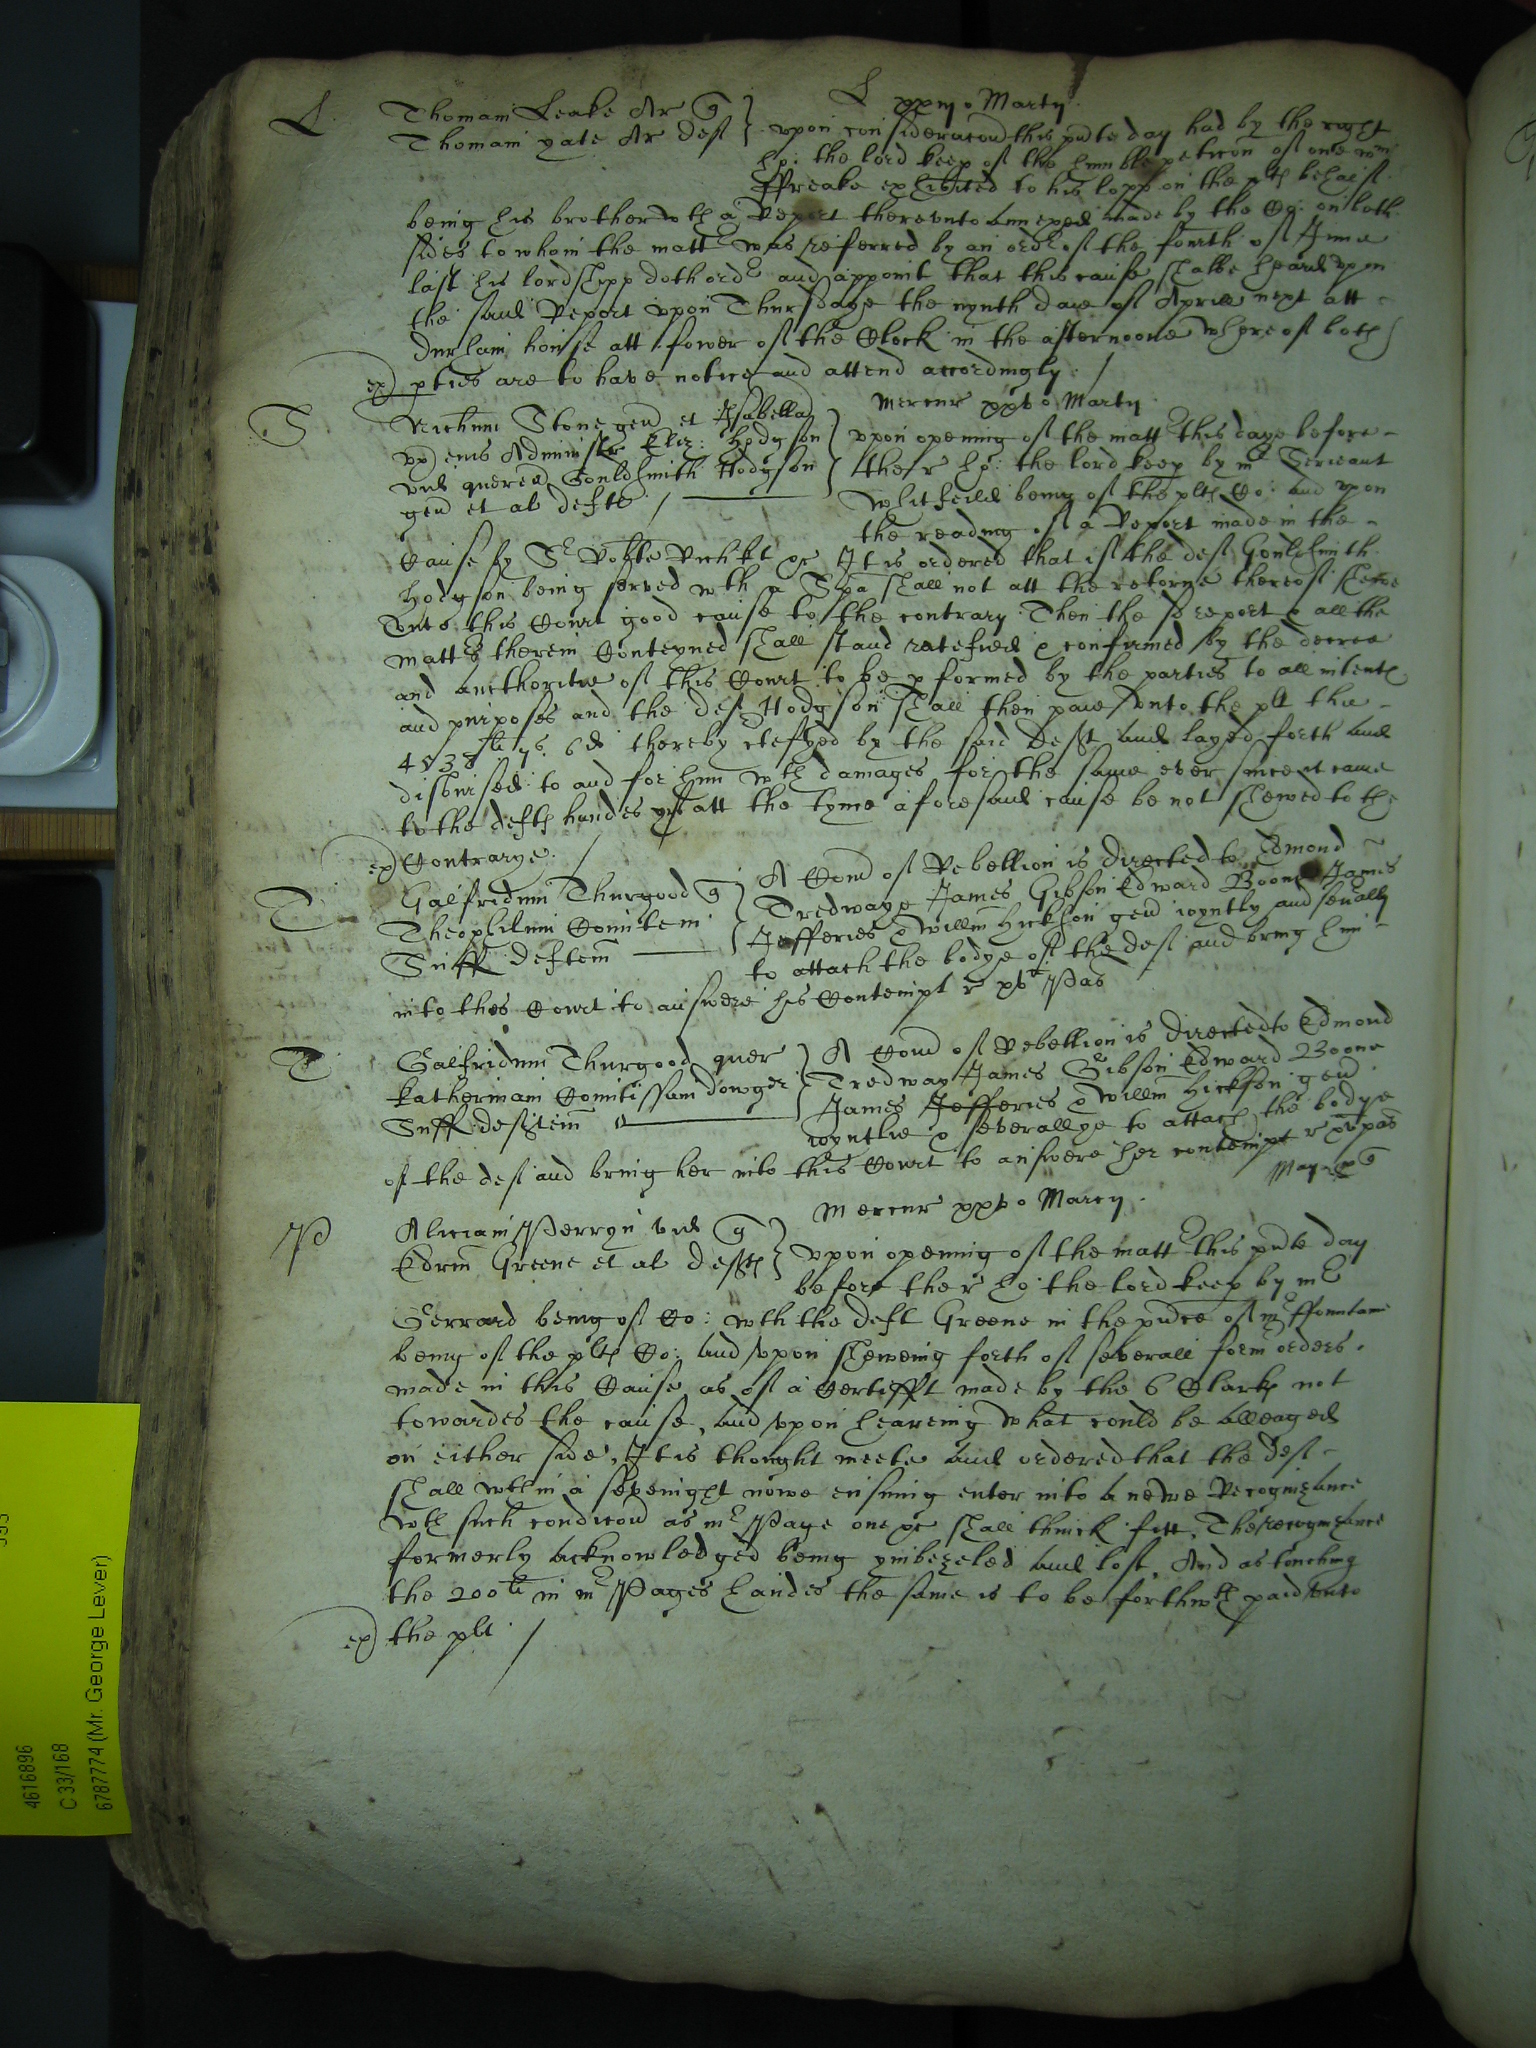 L Thomam Leake Ar q } L xxiij o Martij
Thomam yate Ar deft } vpon consideracon this pnte day had by the right
ho: the lord keep of the humble peticon of one Wm
ffreake exhibited to his lopp on the plts behalf
being his brother wth a Report therevnto annexed made by the Co: on both
sides to whom the mattr was referred by an ordr of the fourth of June
last his lordshipp doth ordr and appoint that this cause shalbe heard vpon
the said Report vpon Thursdaye the nynth daie of Aprill next att
Durham house att fower of the Clock in the afternoone whereof both
ex) pties are to have notice and attend accordingly. /
Mercur xxv o Martij
S Richum Stone gen et Isabellam
vx) eius Administr Eliz: Hodgson
vid queren Gouldsmith Hodgson
gen et al defts /
vpon opening of the mattr this daye before
the r ho: the lord keep by mr Serieant
Whitfeild being of the plts Co: and vpon
the reading of a Report made in the
Cause by Sr Robte Rich kt &c It is ordered that if the deft Gouldsmith
Hodgson being served wth a Spa shall not att the retorne thereof shewe
vnto this Court good cause to the contrary Then the sd report & all the
mattrs therein Conteyned shall stand ratefied & confirmed by the decree
and aucthoritie of this Court to be pformed by the parties to all intents
and purposes and the deft Hodgson shall then paie vnto the plt the
4538li 7s 6d thereby certefyed by the said Deft and layed forth and
disbursed to and for him wth damages for the same ever since it came
to the defts handes yf att the tyme aforesaid cause be not shewed to the
ex) Contrarye. /
T Galfridum Thurgood q
Theophilum Comitem
Suff deftem
A Com of Rebellion is directed to Edmond
Tredwaye James Gibson Edward Boone James
Jefferies & Willm Hickson gen ioyntly and seually
to attach the bodye of the deft and bring him
into this Court to answere his Contempt r xvo Pas
T Galfridum Thurgood quer
Katherinam Comitissam dowger
Suff deftem
A Com of Rebellion is directed to Edmond
Tredway James Gibson Edward Boone
James Jefferies & Willm Hickson gen
ioyntlie & severallye to attach the bodye
of the deft and bring her into this Court to answere her contempt r xvo pas
Mercur xxv o Marcij.
P Aliciam Perryn vid q
Edrum Greene et al defts
vpon opening of the mattr this pnte day
before the r ho: the lord keep by mr
Gerrard being of Co: wth the deft Greene in the pnce of mr ffountaine
being of the plts Co: and vpon sheweing forth of severall form orders
made in this Cause as of a Certifft made by the 6 Clarks not
towardes the cause, and vpon heareing what could be alleaged
on either side, It is thought meete and ordered that the deft
shall wthin a sevenight nowe ensuing enter into a newe Recognizance
wth such condicon as mr Page one &c shall thinck fitt, The recognizance
formerly acknowledged being ymbezeled and lost, And as touching
the 200li in mr Pages handes the same is to be forthwth paid vnto
ex) the plt. /
4616896
C 33/168
6787774 (Mr. George Lever)